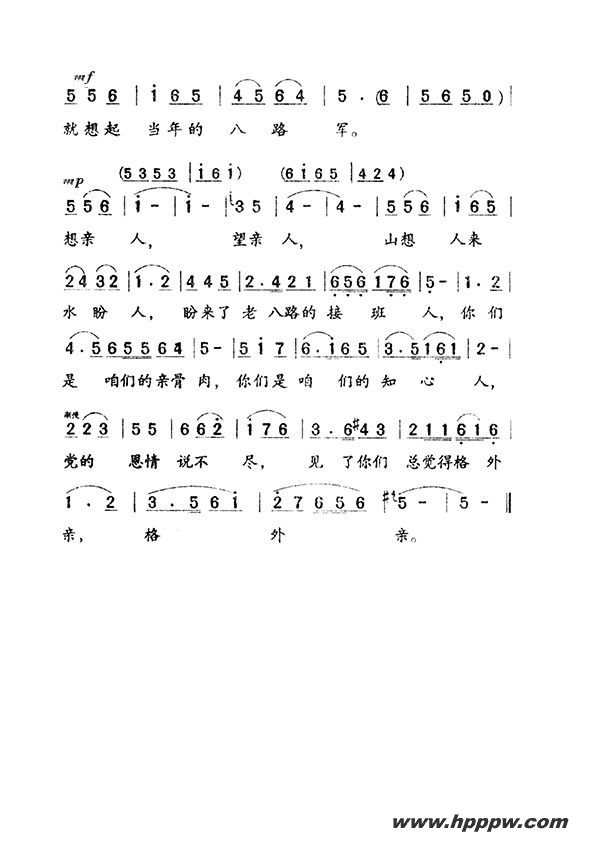 mf
5 5 6 | i 6 5 | 4 5 6 4 | 5 . (6 | 5 6 5 0) |
就想起 当年的 八 路 军。
(5 3 5 3 | i 6 i) (6 i 6 5 | 4 2 4)
mp
5 5 6 | i - | i - | 3 5 | 4 - | 4 - | 5 5 6 | i 6 5 |
想亲 人， 望亲 人， 山想 人来
2 4 3 2 | 1 . 2 | 4 4 5 | 2 . 4 2 1 | 6 5 6 1 7 6 | 5 - | 1 . 2 |
水盼 人，盼来了老八路的接 班 人，你们
4 . 5 6 5 5 6 6 4 | 5 - | 5 1 7 | 6 . 1 6 5 | 3 . 5 1 6 1 | 2 - |
是 咱们的亲骨 肉，你们是咱 们的知 心 人，
渐慢
2 2 3 | 5 5 | 6 6 2 | 1 7 6 | 3 . 6 #4 3 | 2 1 1 6 1 6 |
党的 恩情 说不 尽， 见 了你们 总觉得格 外
1 . 2 | 3 . 5 6 i | 2 7 6 5 6 | 5 - | 5 - ‖
亲， 格 外 亲。
www.hpppw.com